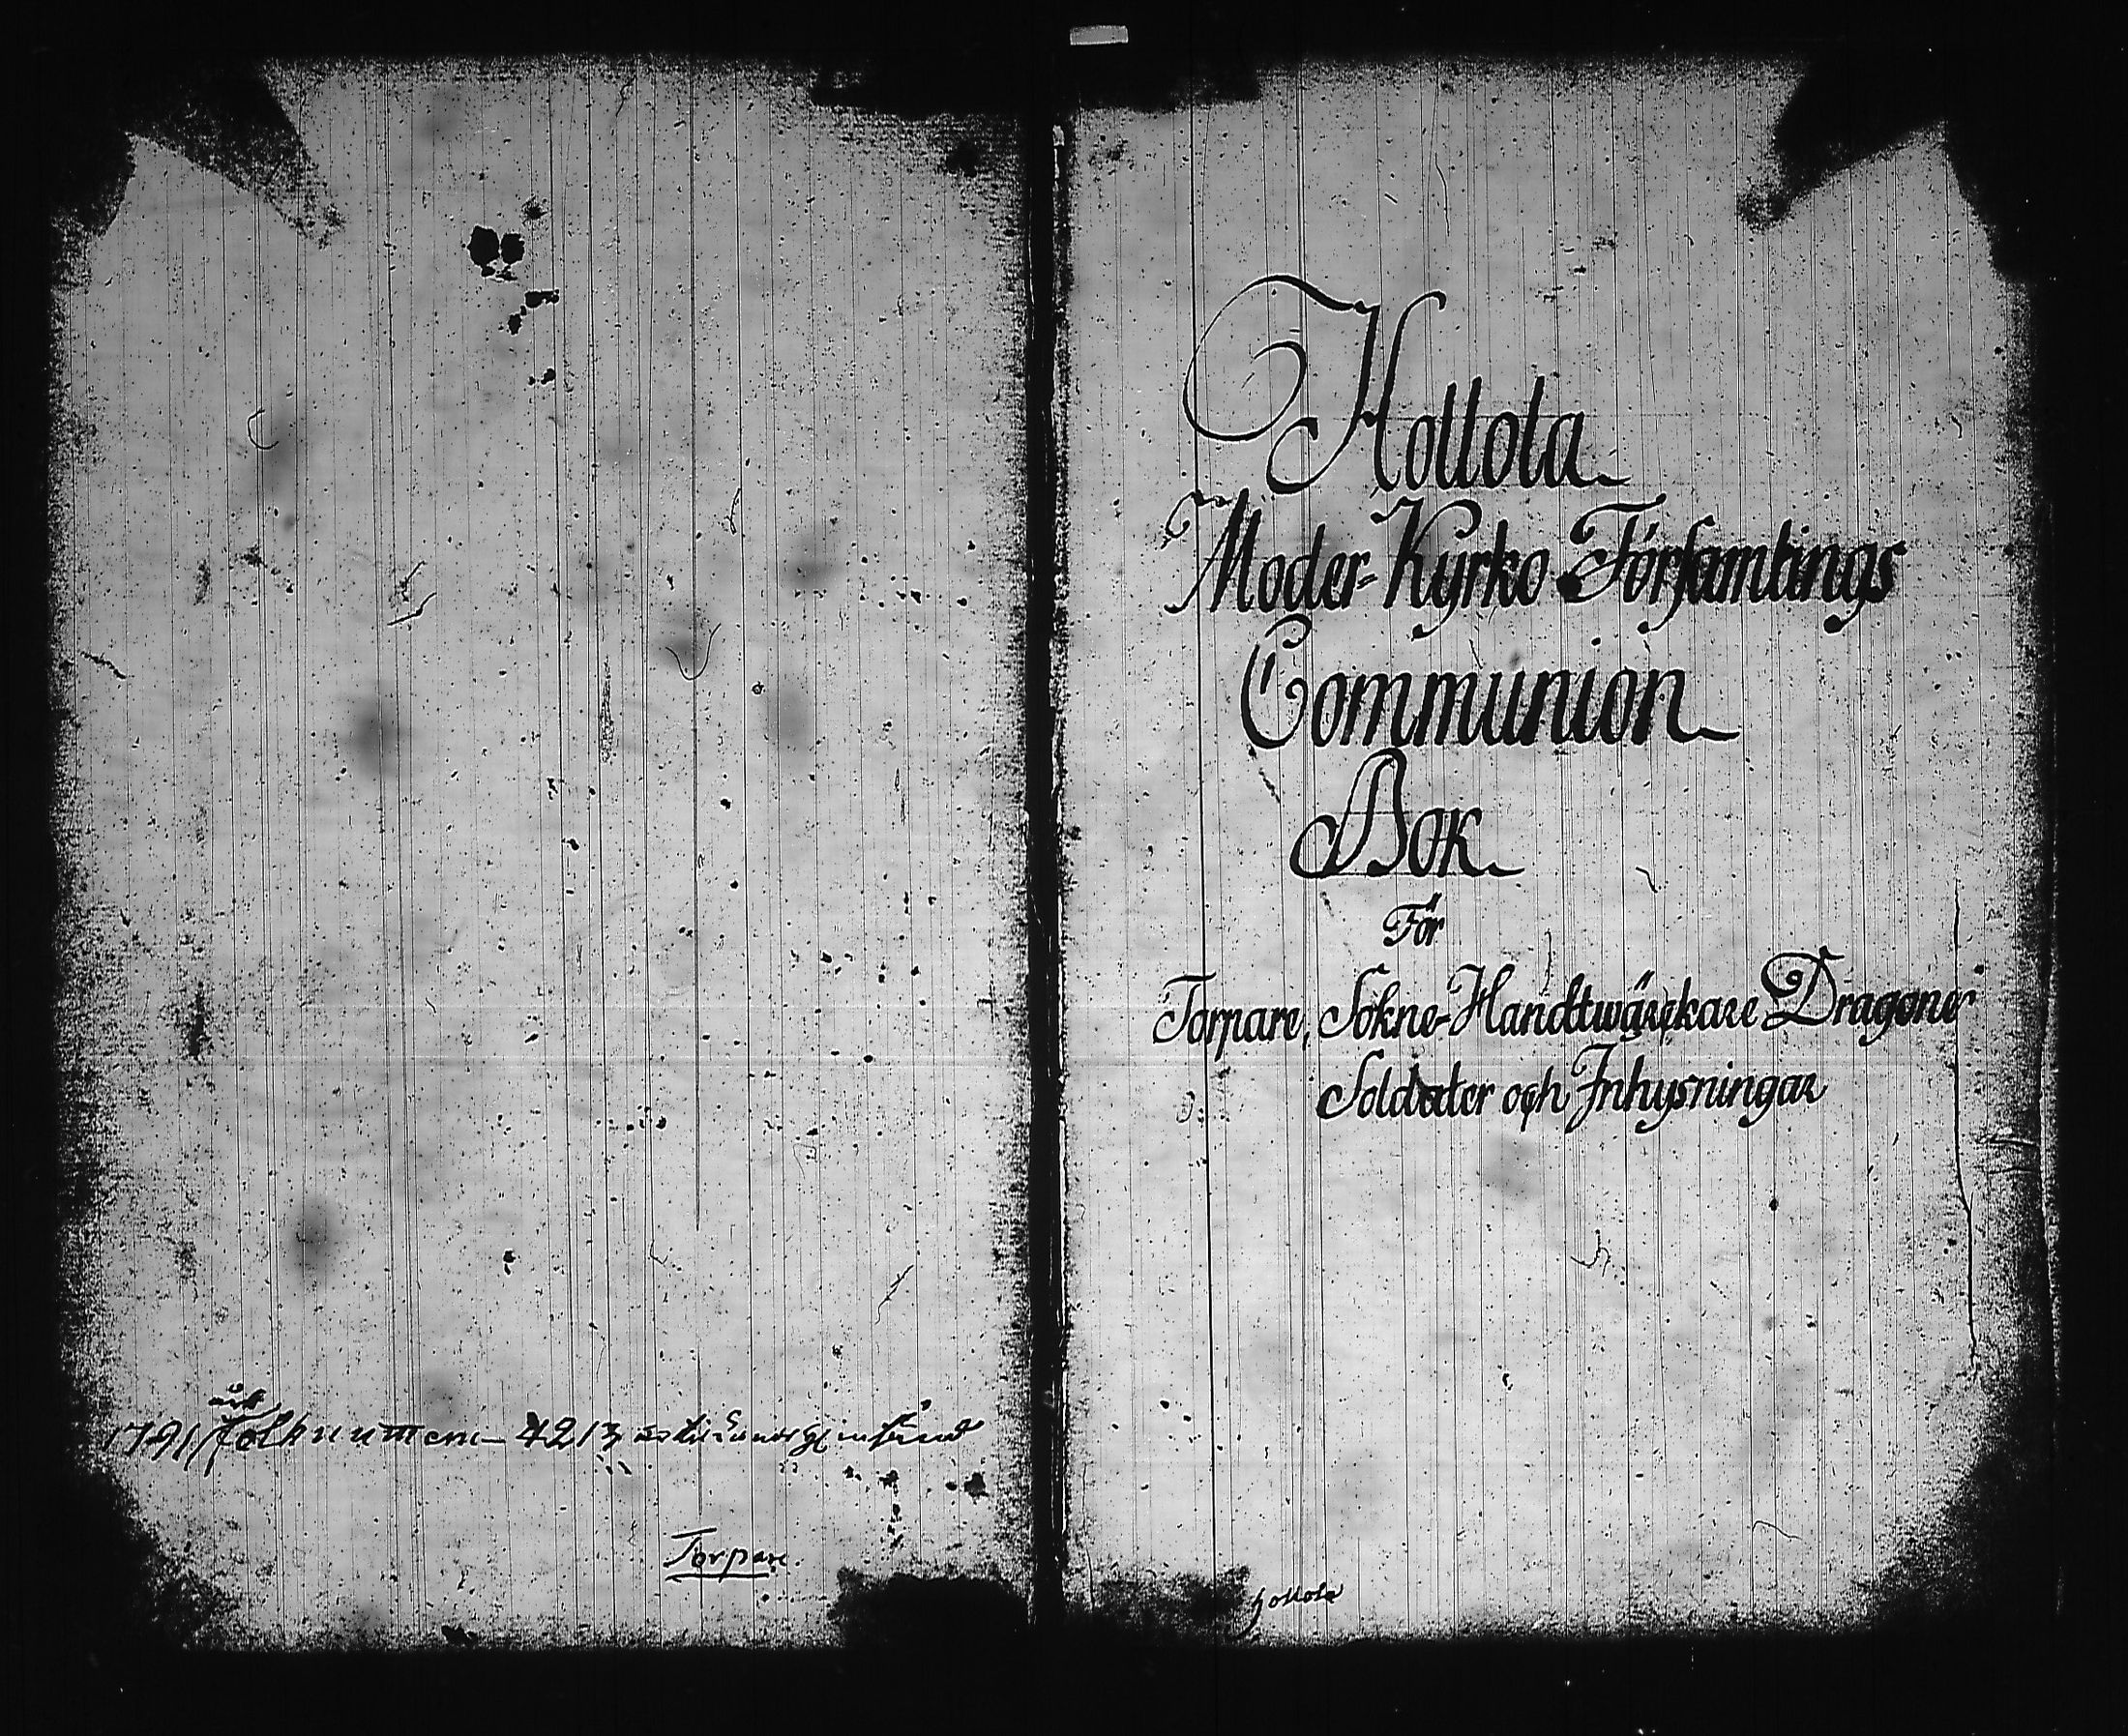 1791 års folknummern 4213
Torpare.
Hollola
Moder-Kyrko Församlings
Communion
Bok
För
Torpare, Sokne-Handtwärckare Dragoner
Soldater och Inhysningar
Hollola